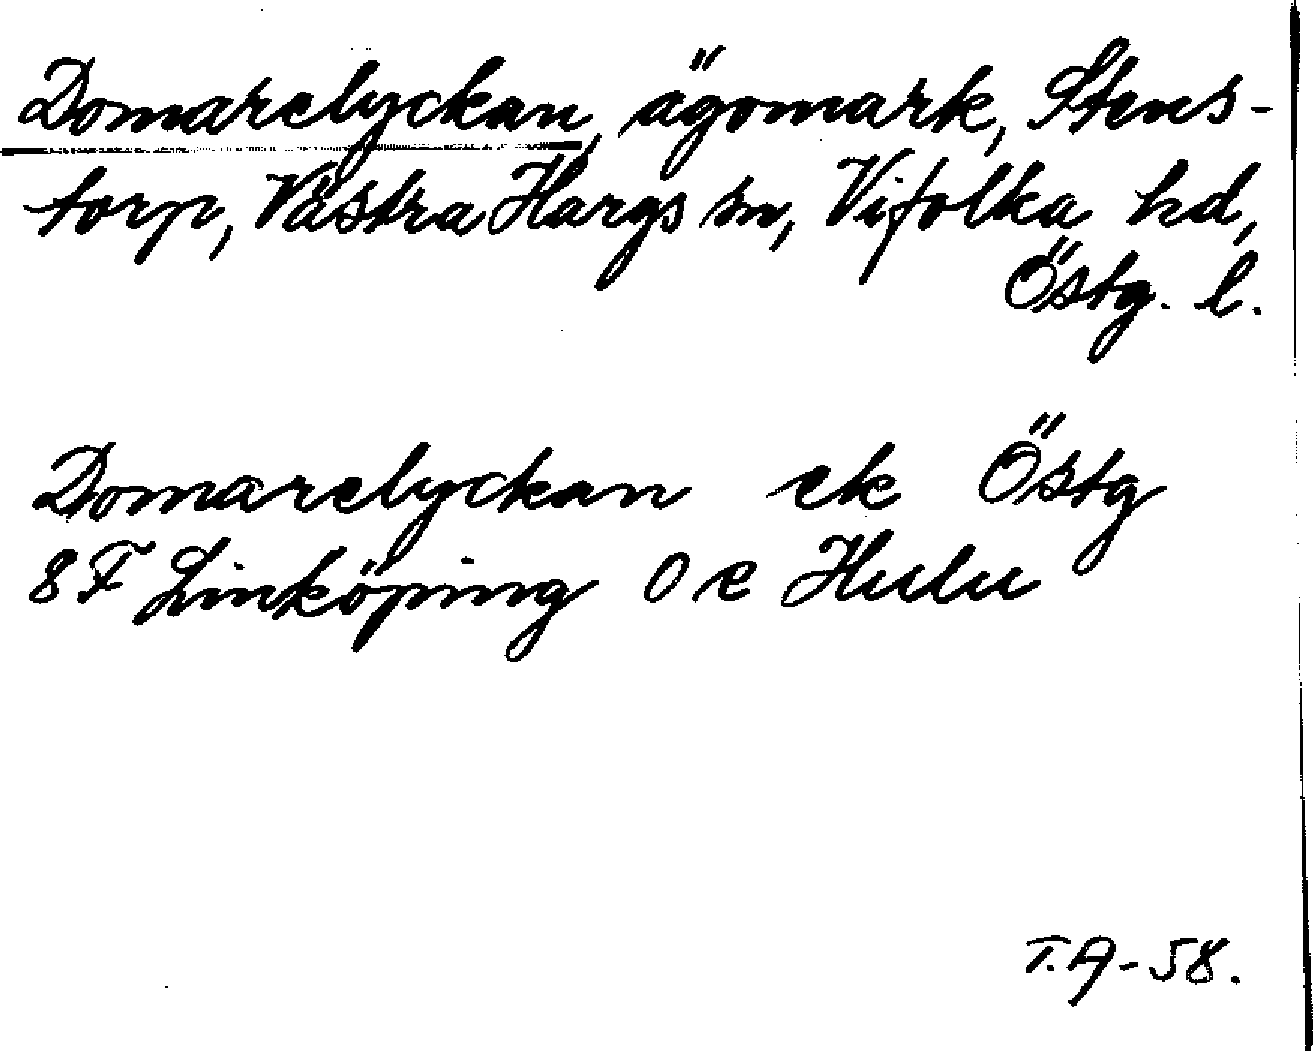 Domarelyckan, ägomark, Stens-
torp, Västra Hargs sn, Vifolka hd,
Östg. l.
Domarelyckan ek Östg
8F Linköping 0 e Hulu
T.A-58.